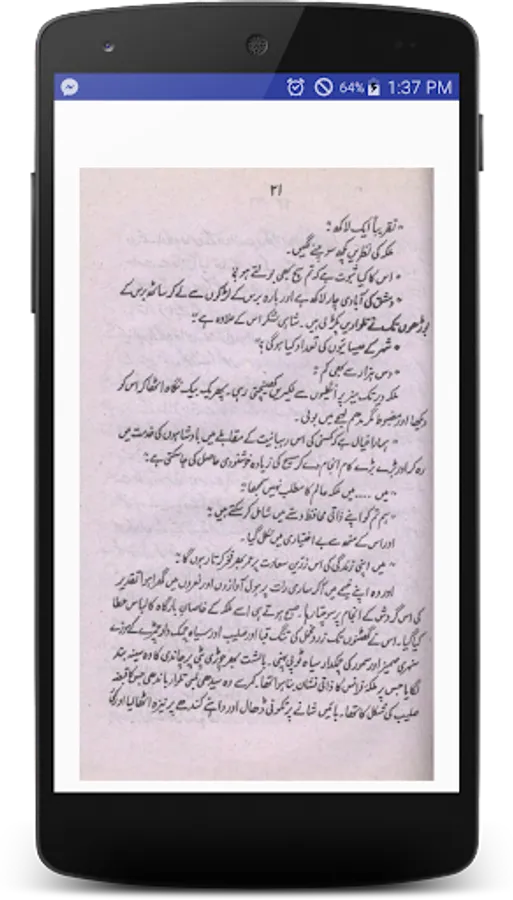 64% 1:37 PM
۲۱
" تقریباً ایک لاکھ :"
ملکہ کی نظریں کچھ سوچنے لگیں۔
" اس کا کیا ثبوت ہے کہ تم سچ بھی بولتے ہو؟"
" دمشق کی آبادی چار لاکھ ہے اور بارہ برس کے لڑکوں سے لے کر ساٹھ برس کے
بوڑھوں تک نے تلواریں پکڑ لی ہیں۔ شاہی لشکر اس کے علاوہ ہے :"
" شہر کے عیسائیوں کی تعداد کیا ہوگی ؟"
" دس ہزار سے بھی کم :"
ملکہ دیر تک میز پر انگلیوں سے لکیریں کھینچتی رہی۔ پھر یک بیک نگاہ اٹھا کر اس کو
دیکھا اور مضبوط مگر مدھم لہجے میں بولی۔
" ہمارا خیال ہے کہ کمسنی کی اس رہبانیت کے مقابلے میں بادشاہوں کی خدمت میں
رہ کر اور بڑے بڑے کام انجام دے کر مسیح کی زیادہ خوشنودی حاصل کی جاسکتی ہے :"
" میں ..... میں ملکہ عالم کا مطلب نہیں سمجھا :"
" ہم تم کو اپنے ذاتی محافظ دستے میں شامل کر سکتے ہیں :"
اور اس کے منھ سے بے اختیاری میں نکل گیا۔
" میں اپنی زندگی کی اس زرّیں سعادت پر عمر بھر فخر کرتا رہوں گا :"
اور وہ اپنے خیمے میں آکر ساری رات پر ہول آوازوں اور نعروں میں گھرا ہوا تقدیر
کی اس گردش کے انجام پر سوچتا رہا۔ صبح ہوتے ہی اسے ملکہ کے خاصانِ بارگاہ کا لباس عطا
کیا گیا۔ اس نے گھٹنوں تک زرد مخمل کی تنگ قبا اور صلیب اور سیاہ چمکدار چمڑے کے موزے
سنہری مہمیز اور سمور کی چمکدار سیاہ ٹوپی پہنی۔ بالشت بھر چوڑی پٹی پر چاندی کا وہ سینہ بند
لگایا جس پر ملکۂ فرانس کا ذاتی نشان بنا ہوا تھا۔ کمر سے وہ سیدھی لمبی تلوار باندھی جس کا قبضہ
صلیب کی شکل کا تھا۔ بائیں شانے پر تکونی ڈھال اور داہنے کندھے پر نیزہ اٹھا لیا اور کئی